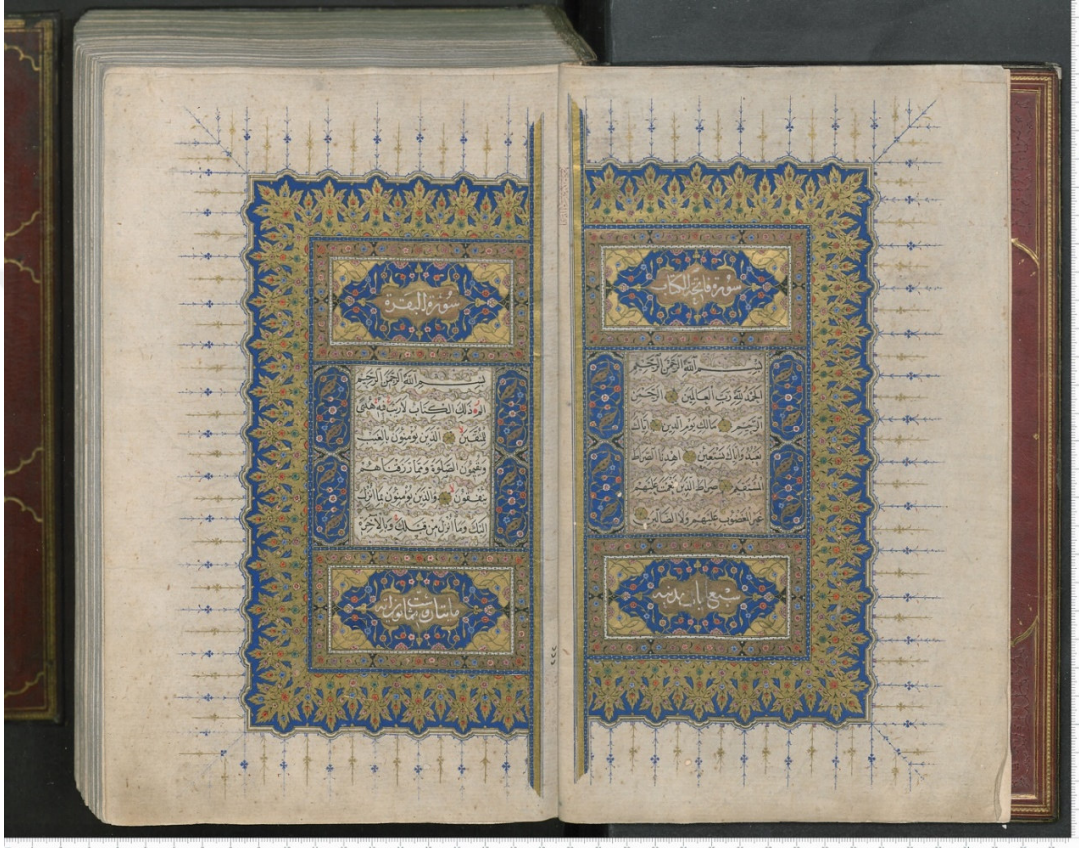 سورة فاتحة الكتاب
بسم الله الرحمن الرحيم
الحمد لله رب العالمين الرحمن
الرحيم مالك يوم الدين اياك
نعبد واياك نستعين اهدنا الصراط
المستقيم صراط الذين انعمت عليهم
غير المغضوب عليهم ولا الضالين
سبع ايات مدنية
سورة البقرة
بسم الله الرحمن الرحيم
الم ذلك الكتاب لا ريب فيه هدى
للمتقين الذين يؤمنون بالغيب
ويقيمون الصلوة ومما رزقناهم
ينفقون والذين يؤمنون بما انزل
اليك وما انزل من قبلك وبالاخرة
مائتان وست وثمانون اية